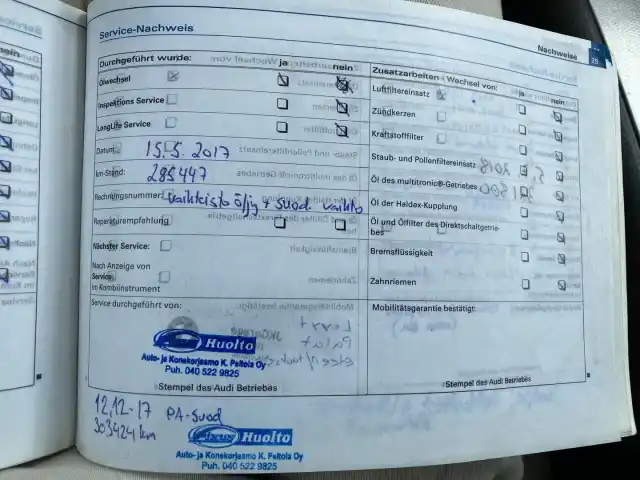 Service-Nachweis
Nachweise
29
Durchgeführt wurde: ja nein
Ölwechsel
Inspektions Service
LongLife Service
Datum: 15.5. 2017
km-Stand: 285447
Rechnungsnummer:
Reparaturempfehlung
Nächster Service:
Nach Anzeige von
Service
im Kombiinstrument
Service durchgeführt von:
Huolto
Auto- ja Konekorjaamo K. Peltola Oy
Puh. 040 522 9825
Stempel des Audi Betriebes
Zusatzarbeiten - Wechsel von: ja nein
Luftfiltereinsatz
Zündkerzen
Kraftstofffilter
Staub- und Pollenfiltereinsatz
Öl des multitronic®-Getriebes
Öl der Haldex-Kupplung
Öl und Ölfilter des Direktschaltgetrie-
bes
Bremsflüssigkeit
Zahnriemen
Mobilitätsgarantie bestätigt:
Stempel des Audi Betriebes
12.12-17 PA-suod
303424 km
Fixus Huolto
Auto- ja Konekorjaamo K. Peltola Oy
Puh. 040 522 9825